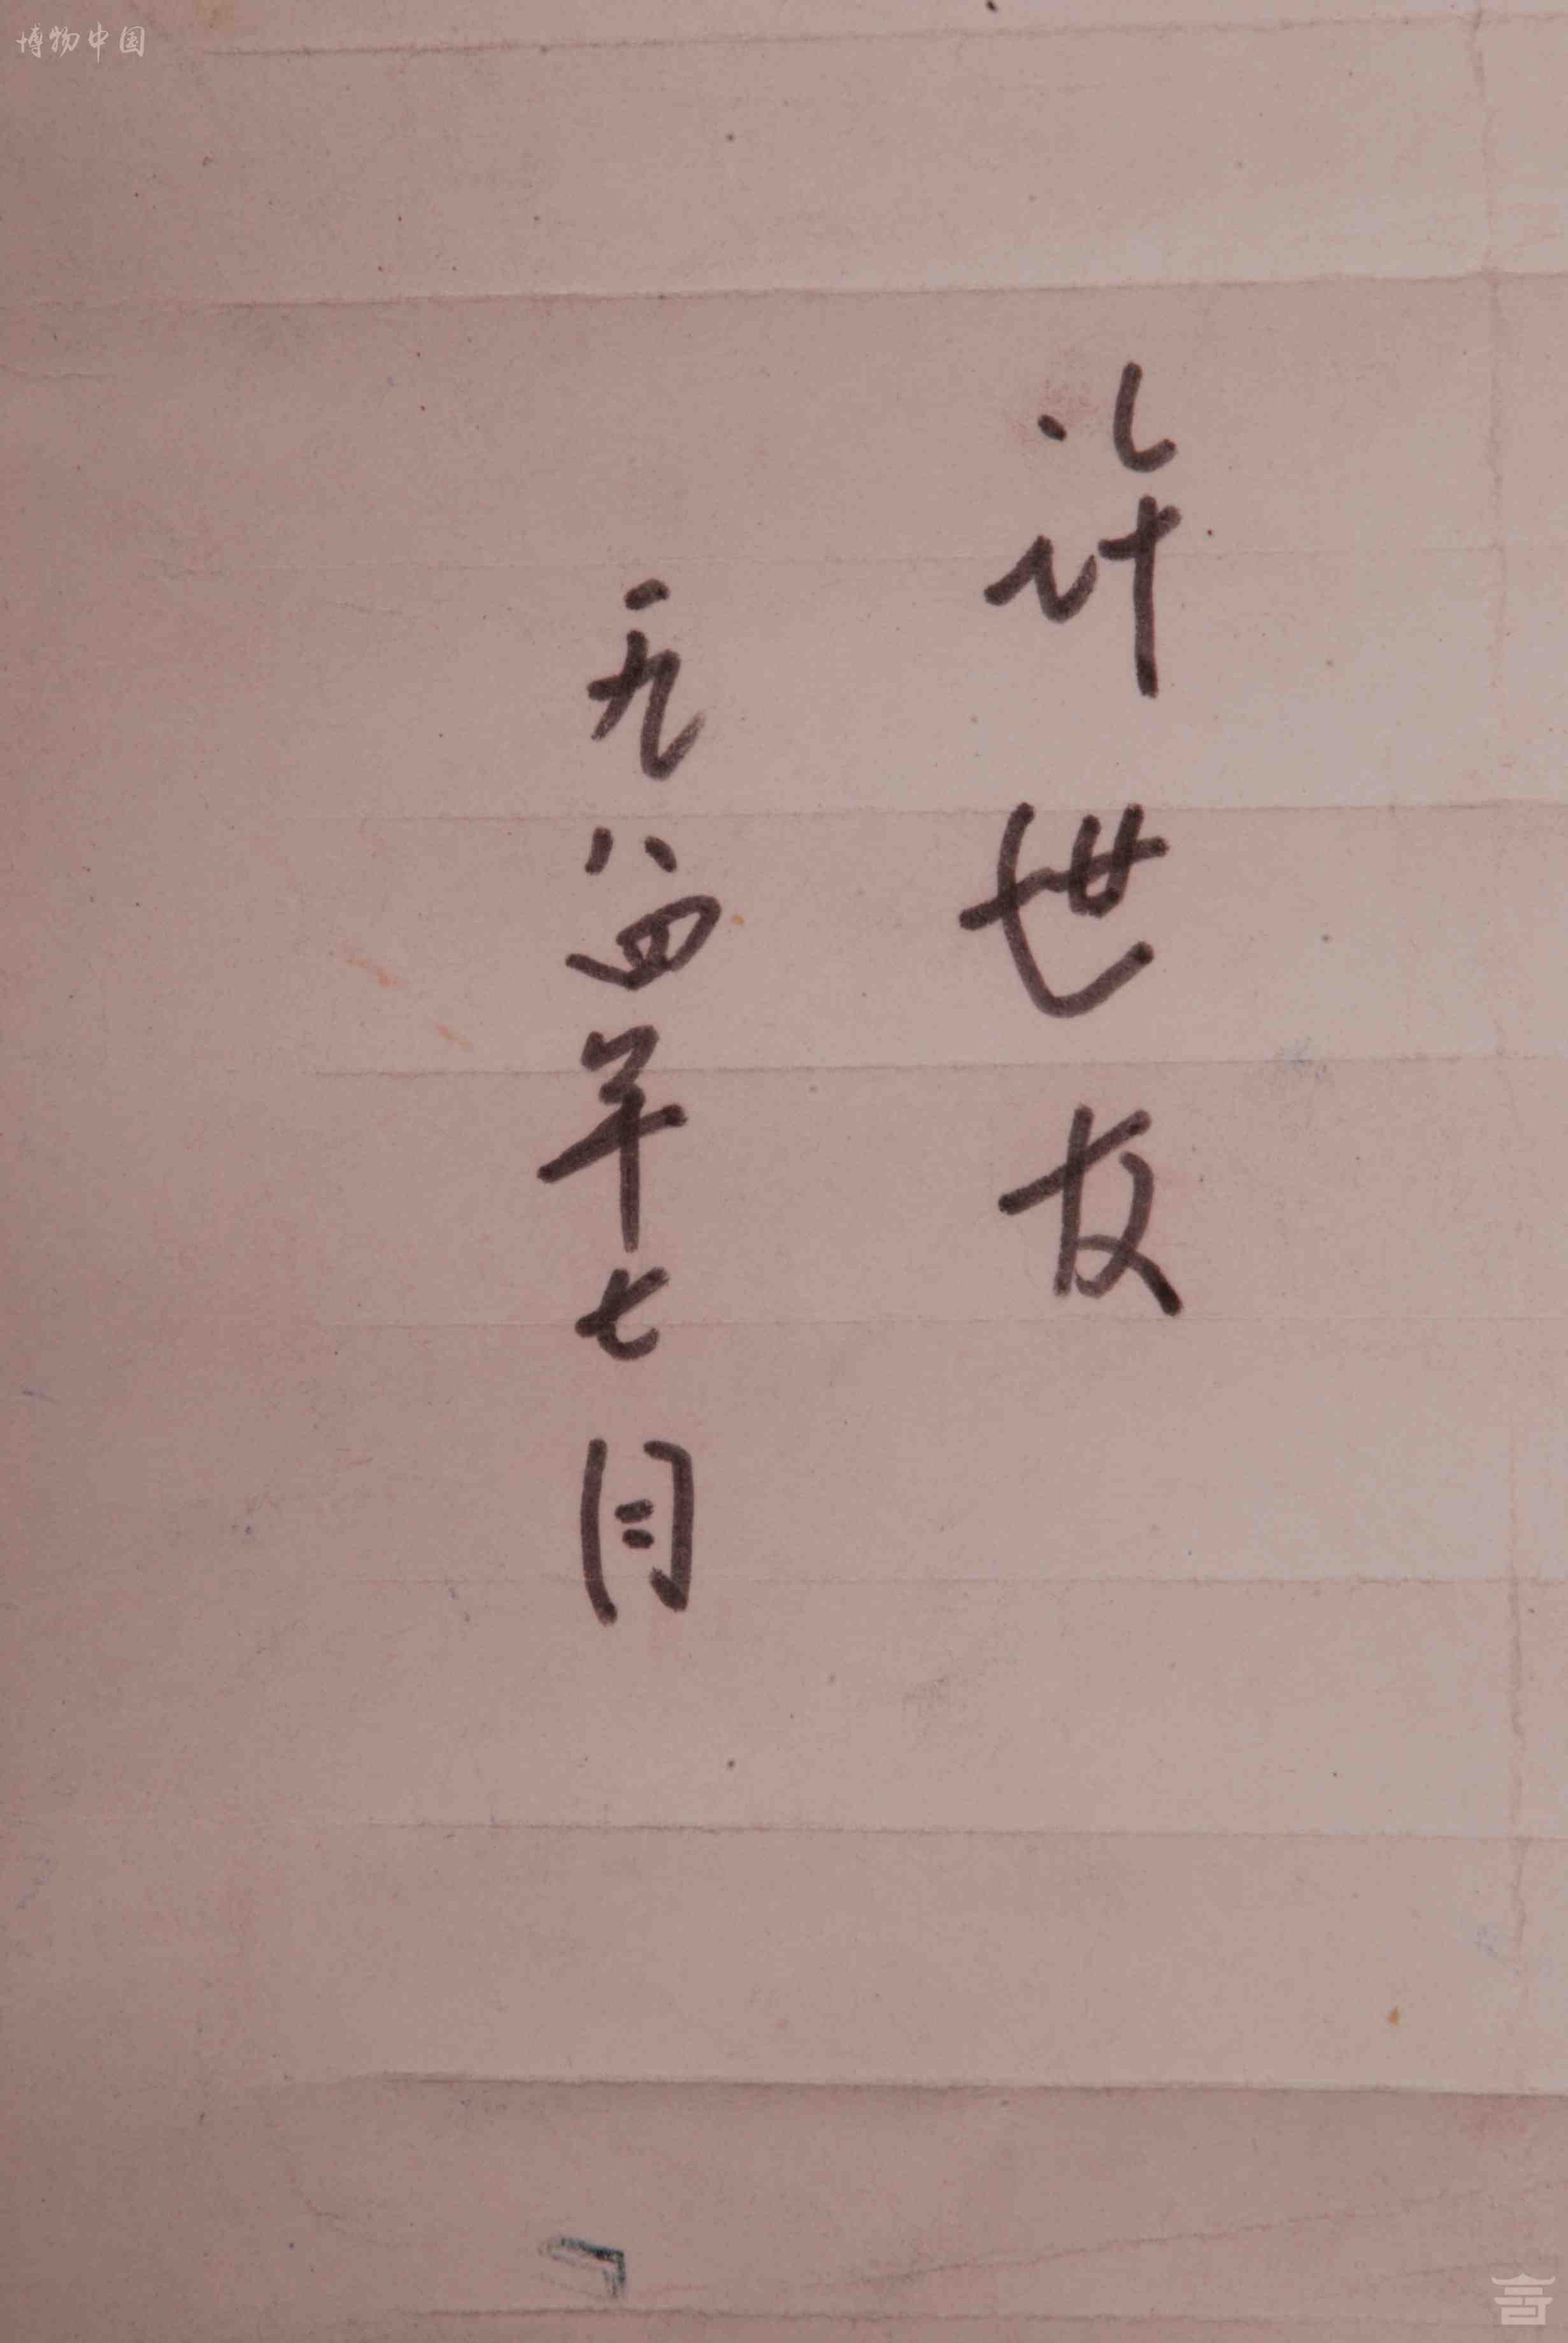 博物中国
许世友
一九八四年七月